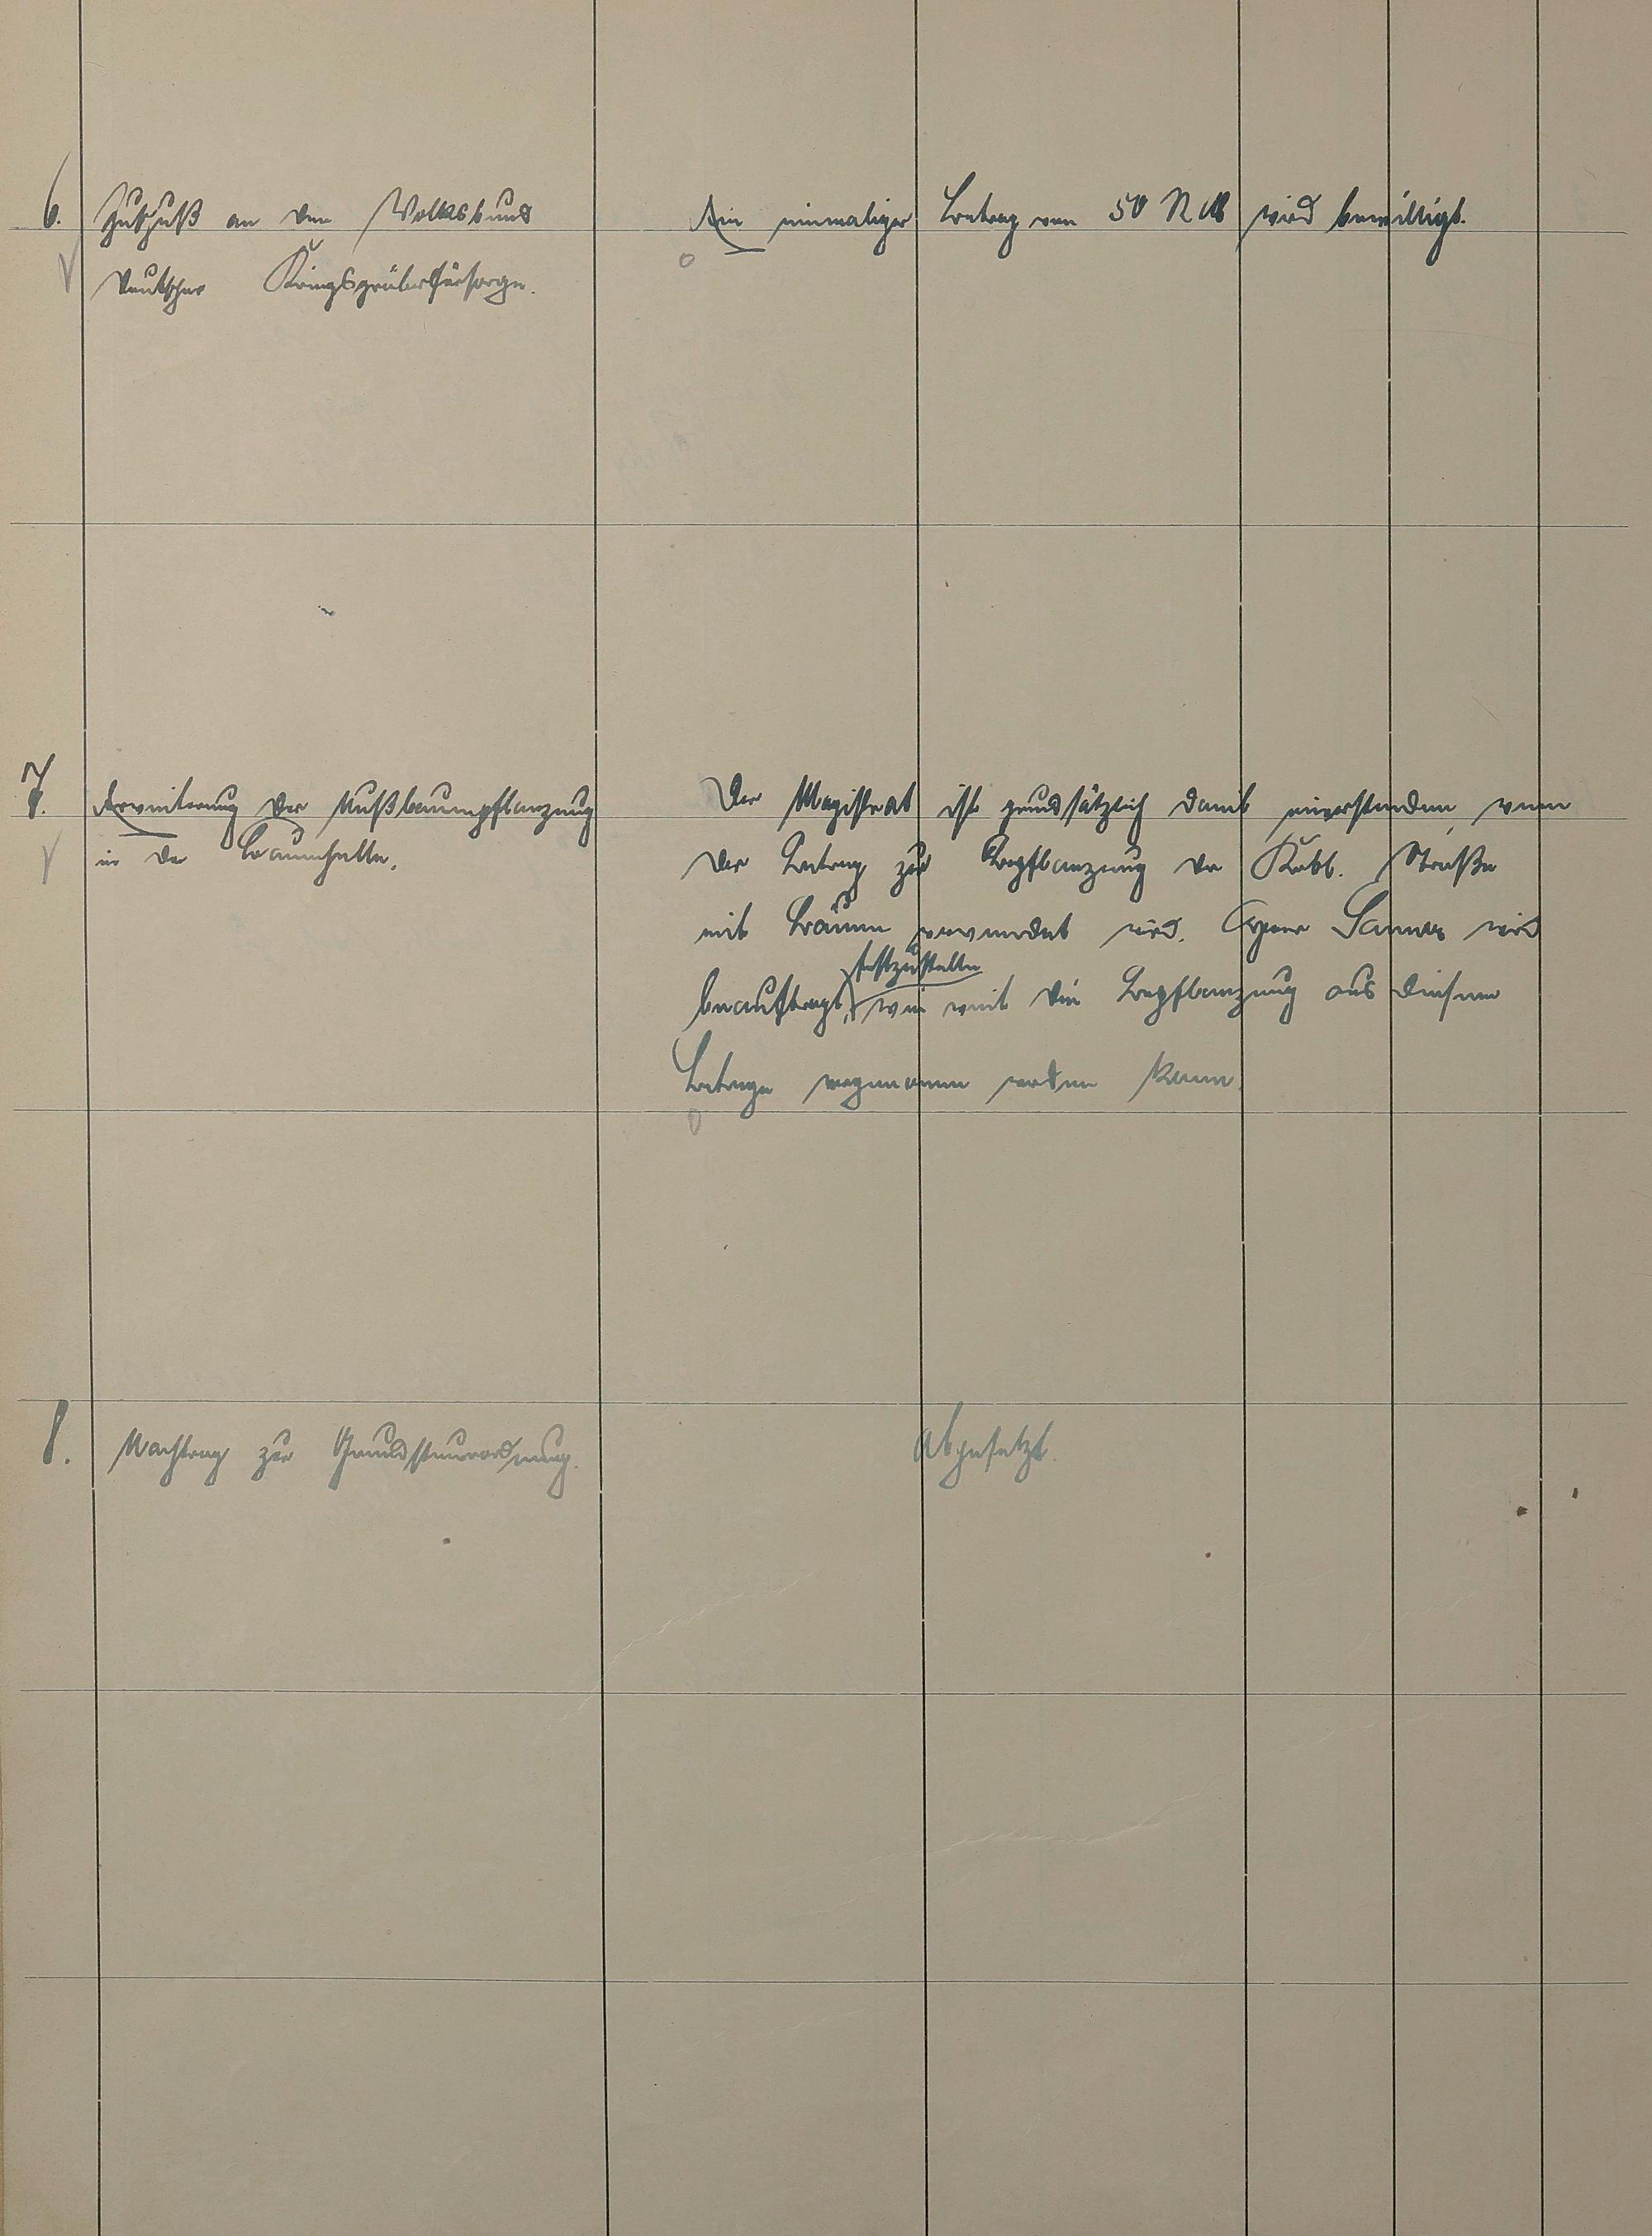 6. Zuschuß an den Volksbund
deutscher Kriegsgräberfürsorge.
Ein einmaliger Betrag von 50 RM wird bewilligt.
7. Erweiterung der Nußbaumpflanzung
in der
Der Magistrat ist grundsätzlich damit einverstanden, wenn
der Betrag zur Bepflanzung der Straße
mit Bäumen verwendet wird. wird
beauftragt, festzustellen
wie weit die Bepflanzung aus diesem
Betrage vorgenommen werden kann.
8. Nachtrag zur Grundsteuerordnung.
Abgesetzt.